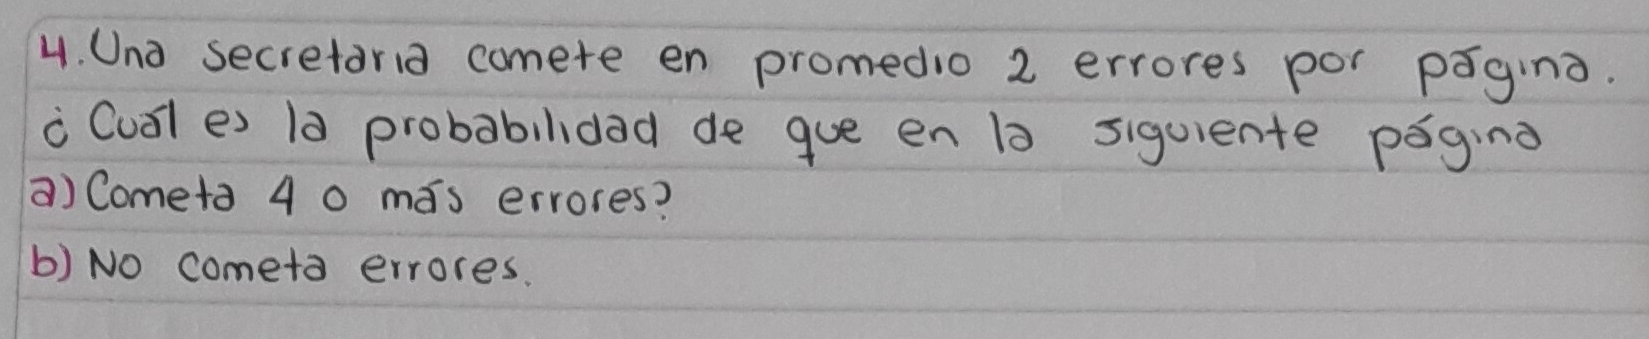 4. Una secretaria comete en promedio 2 errores por página.
¿Cuál es la probabilidad de que en la siguiente página
a) Cometa 4 o más errores?
b) No cometa errores.